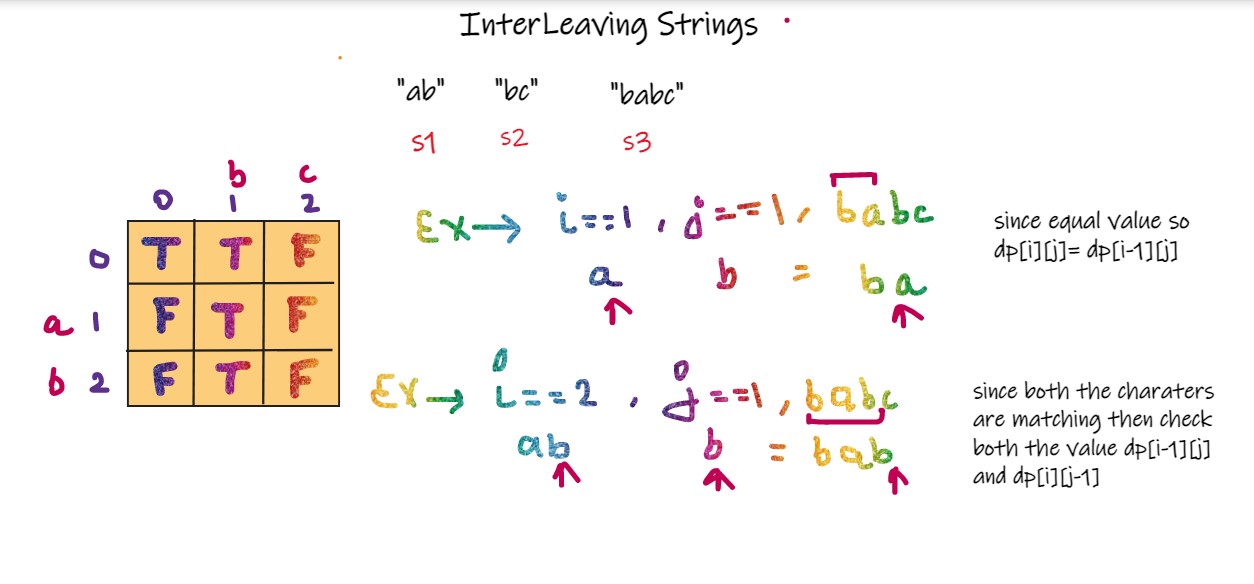 InterLeaving Strings
"ab" "bc" "babc"
s1 s2 s3
b c
0 1 2
0 T T F
a 1 F T F
b 2 F T F
Ex→ i==1, j==1, babc
a b = ba
since equal value so
dp[i][j]= dp[i-1][j]
Ex→ i==2, j==1, babc
ab b = bab
since both the charaters
are matching then check
both the value dp[i-1][j]
and dp[i][j-1]